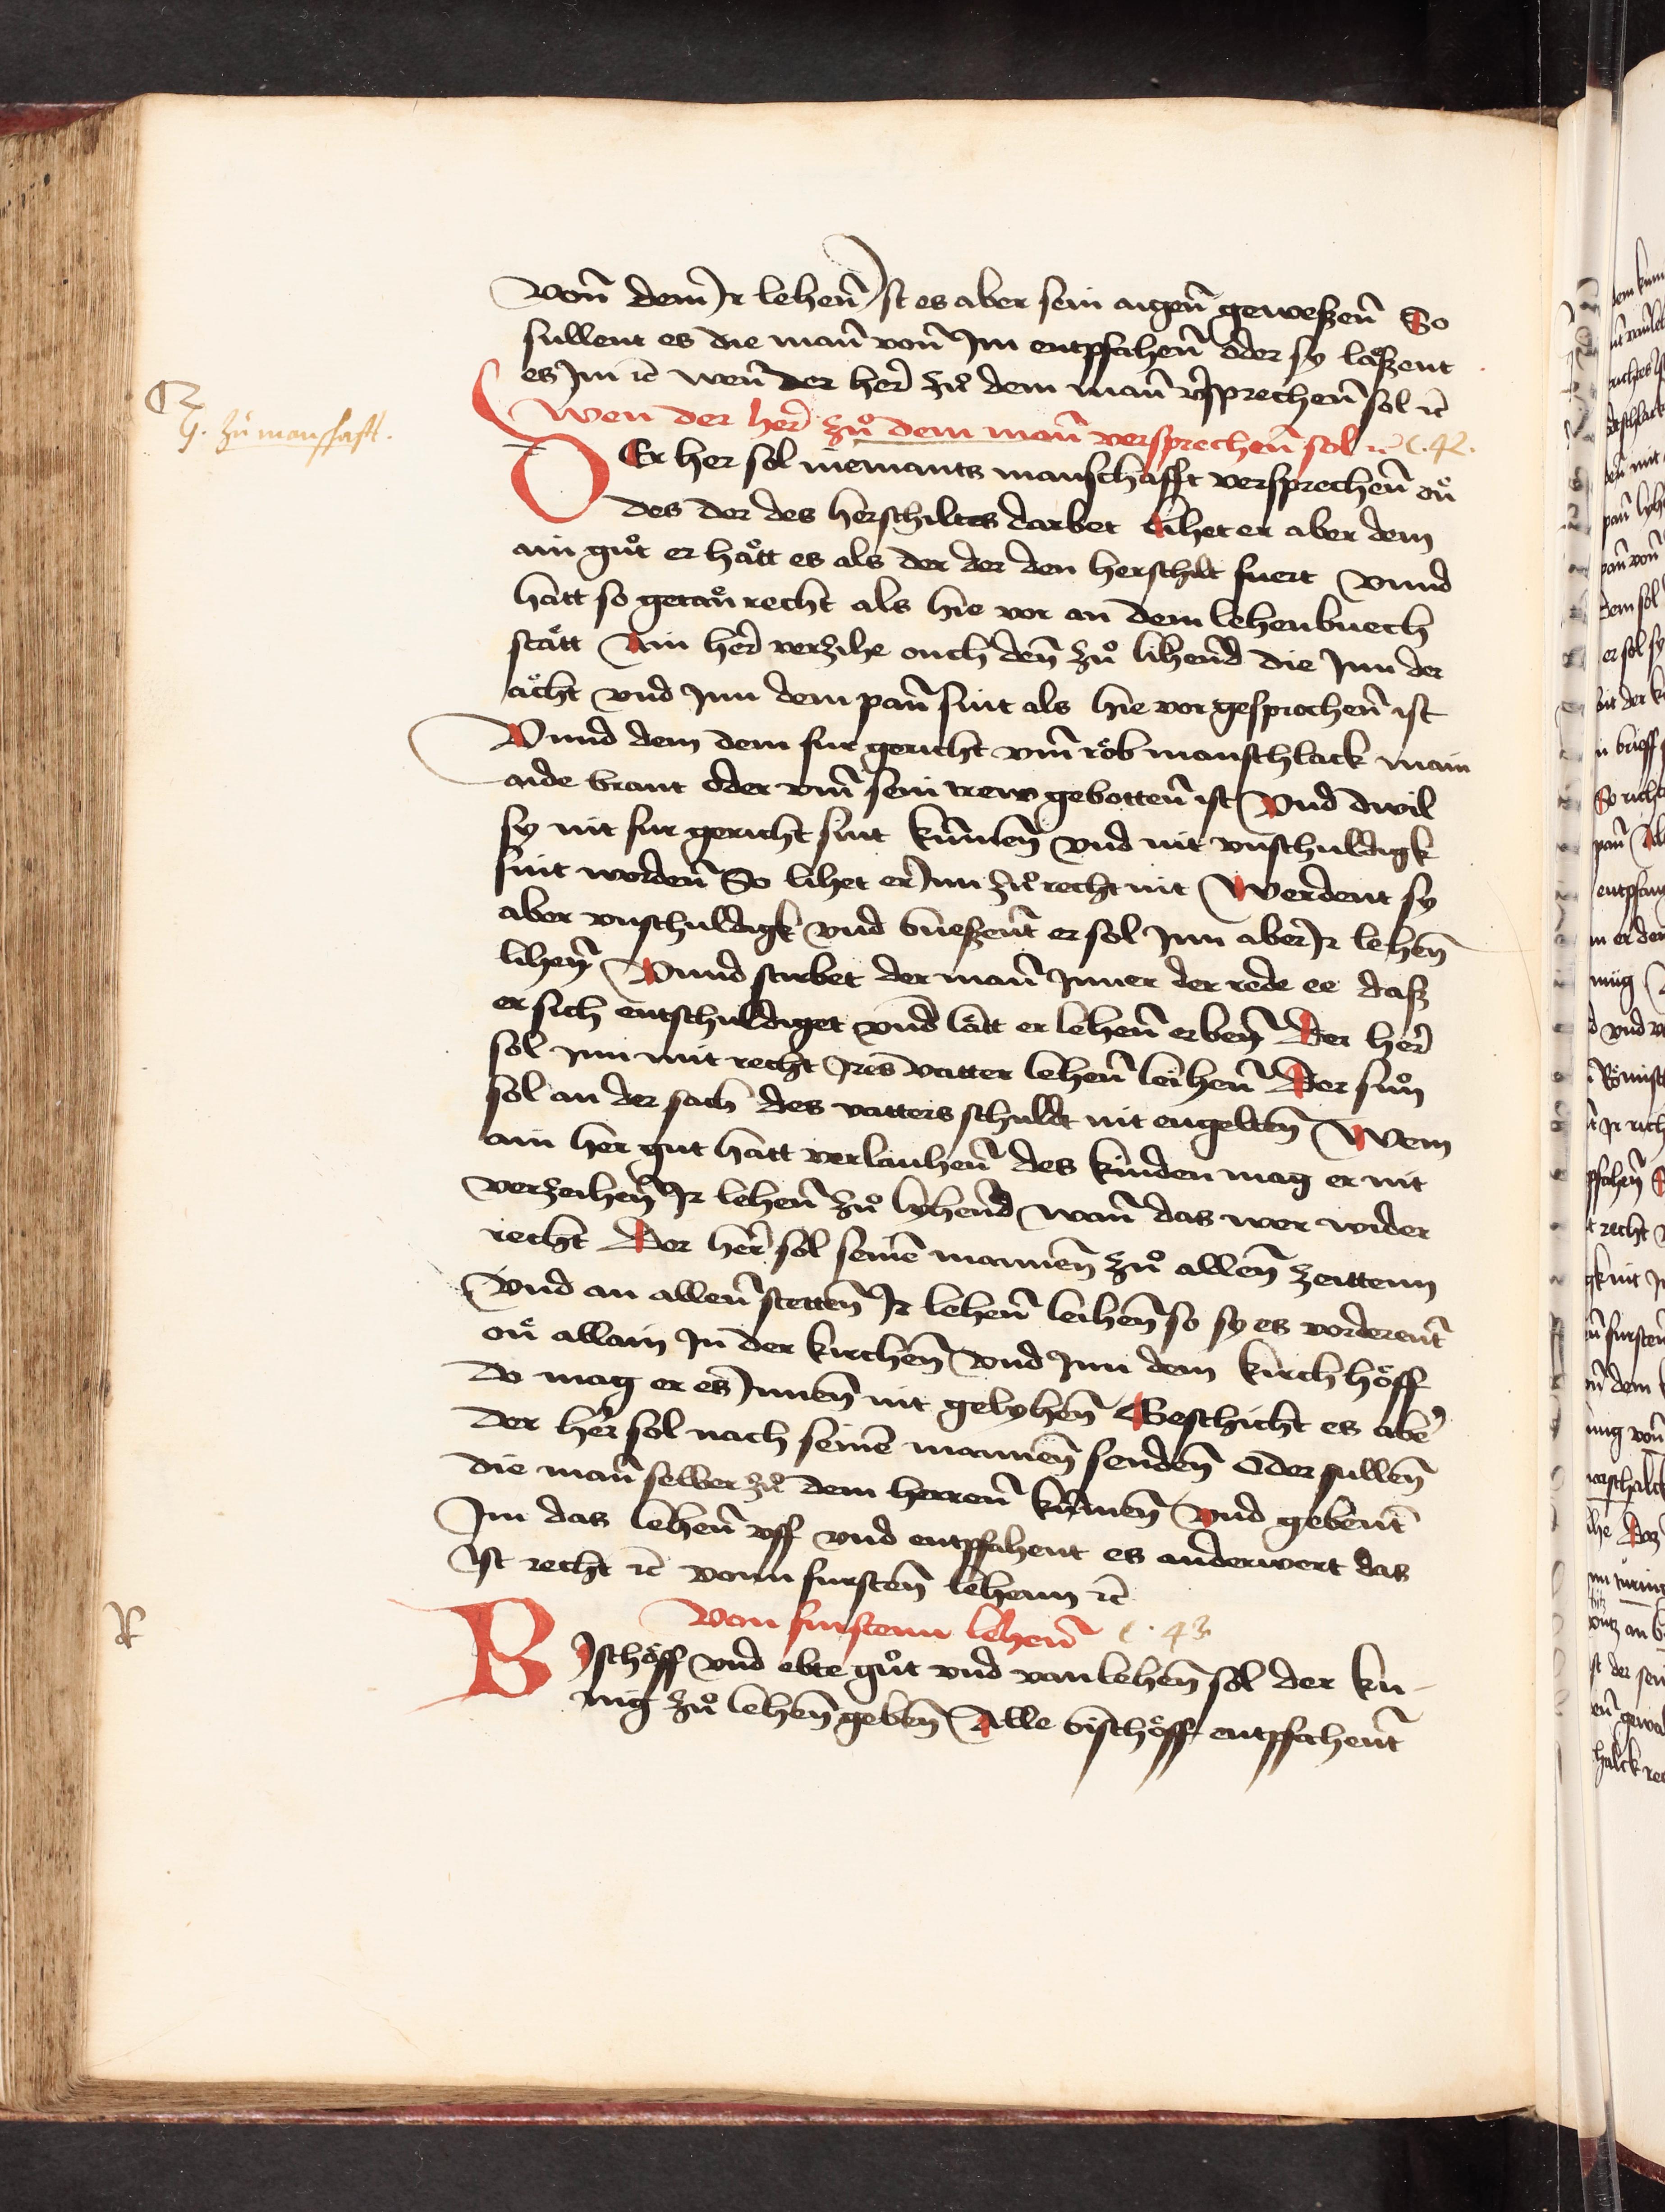 Vonn dem Ir lehenn Ist es aber sein aigenn geweßenn So
sullent es die mann vonn Im entpfahenn oder sy laßent
es Im ꝛc wenn der herꝛ zuͦ dem mann vˀsprechenn sol ꝛc
Wen der herꝛ zuͦ dem mann versprechenn sol ꝛc c. 42.
G. zu manshafft.
DEr her sol niemants manschafft versprechenn on
des der des herschiltes darbet lihet er aber dem
ain guͦt er hatt es als der der den herschilt fuert vnnd
hatt so getan recht als hie vor an dem lehenbuech
statt Ain herꝛ verzihe ouch denn zuͦ lihennd die Inn der
acht vnd Inn dem pann sint als hie vor gesprochenn ist
Vnnd dem dem fur gericht vm rob manschlack main
aide brant oder vm sein trew gebottenn ist Vnd dwil
sy nit fur gericht sint kummen vnd nit vnschuldigk
sint wordenn So lihet er Inn zuͦ recht nit Werdent sy
aber vnschuldigk vnd bueßennt er sol Inn aber Ir lehenn
lihenn Vnnd stirbet der mann Inner der rede ee daß
er sich entschuldiget vnnd latt er lehenn erbenn Der herꝛ
sol Inn mit recht Ires vatter lehenn leihenn Der sun
sol an der sach des vatters schuldt nit engeltenn Wem
ain her gut hatt verlauhenn des kinden mag er nit
verzeihenn Ir lehenn zuͦ lyhennd wann das wer wider
recht Der herꝛ sol seinen mannenn zuͦ allenn zeittenn
Vnd an allenn stettenn Ir lehenn leihenn so sy es vorderennt
on allain In der kirchenn vnd Inn dem kirchhoff
Do mag er es Innenn nit gelyhenn Geschicht es aber
der herꝛ sol nach seinen mannenn sendenn Oder sullenn
die mann selber zuͦ dem herrenn kummenn Vnd gebennt
Im das lehenn vff vnd entpfahent es anderwert das
ist recht ꝛc vonn furstenn lehenn ꝛc
Von furstenn lehenn c. 43
BIschoff vnd ebte guͦt vnd vanlehenn sol der ku-
nig zuͦ lehenn gebenn Alle bischoff entpfahennt